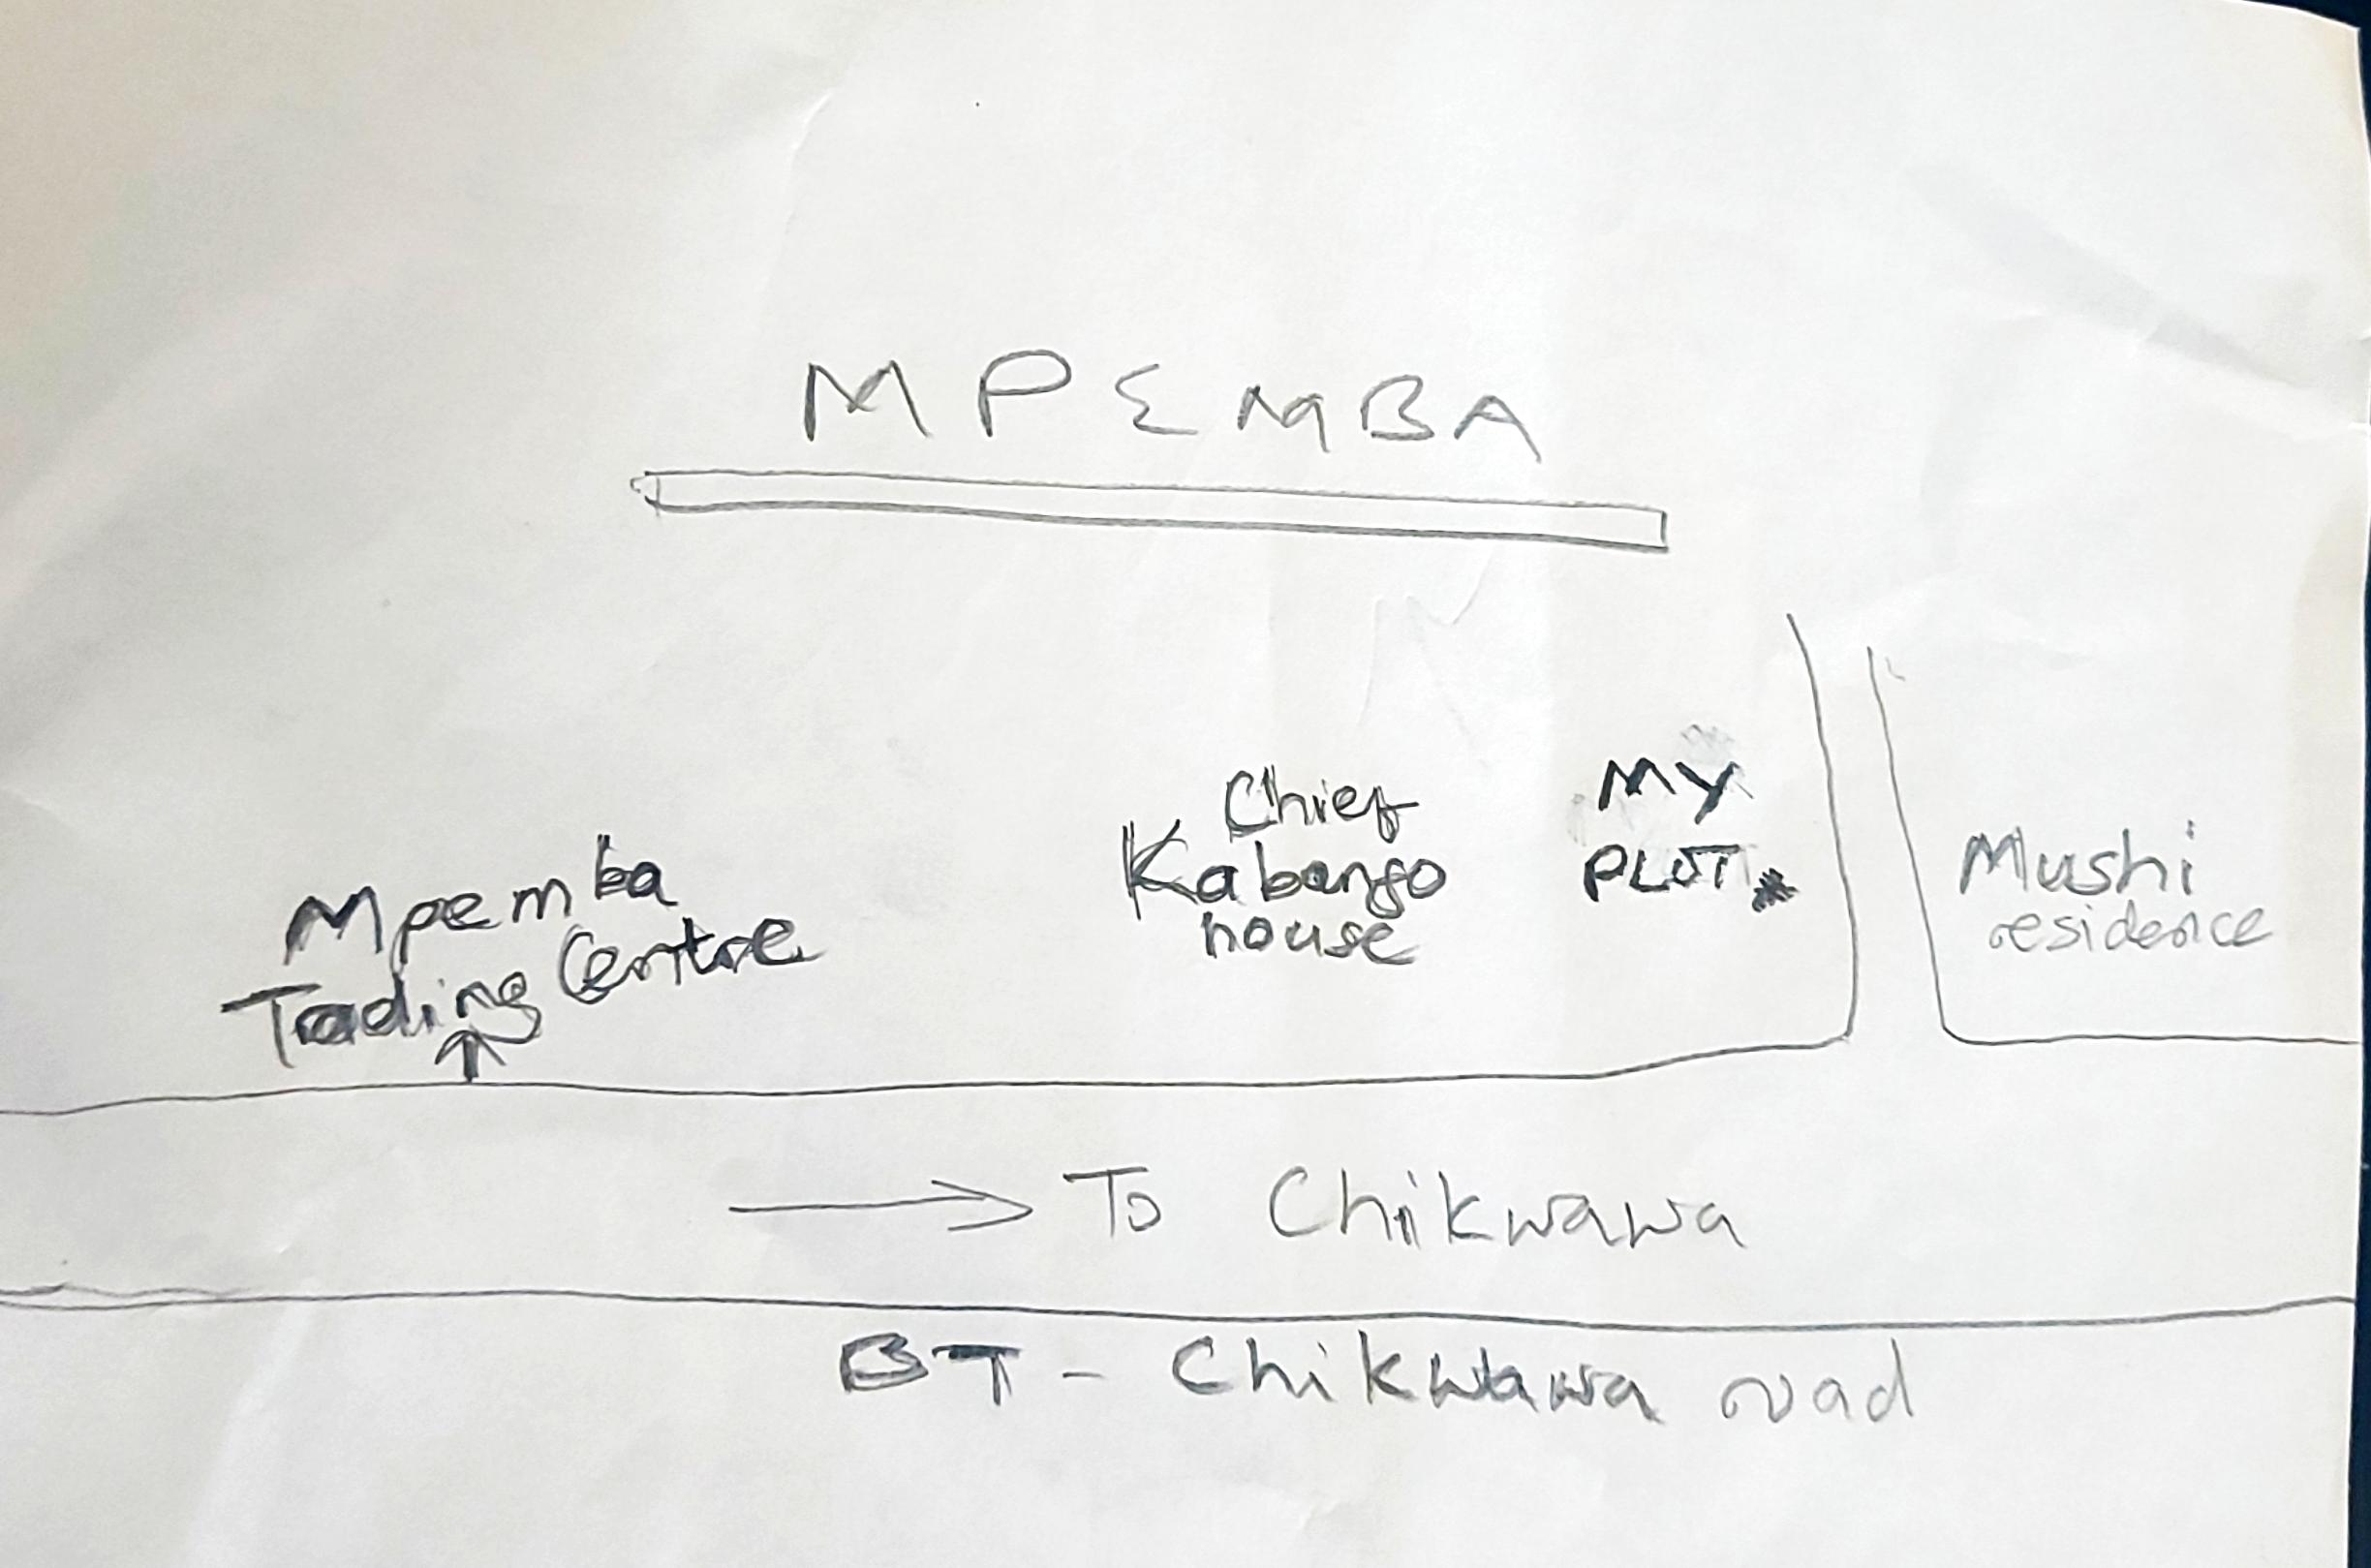 MPEMBA
Chief
Kabango
house
MY
PLOT
Mushi
residence
Mpemba
Trading Centre
To Chikwawa
BT - Chikwawa road